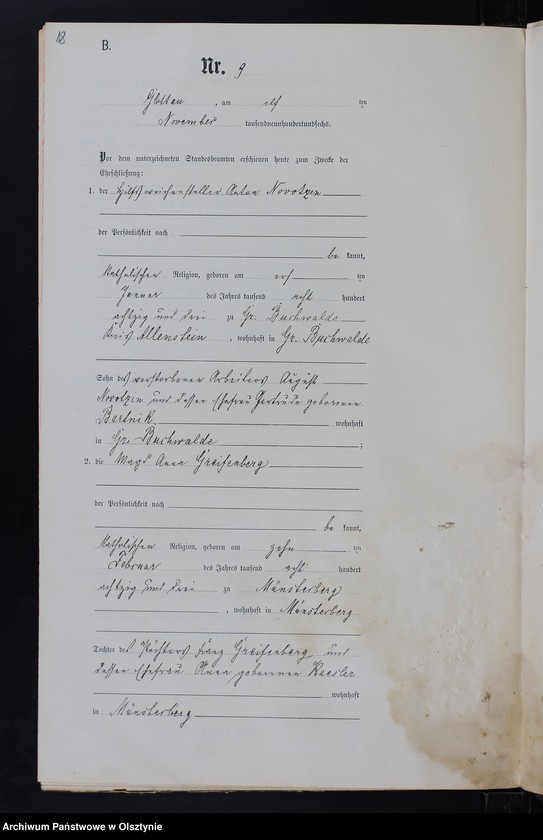 18
B.
Nr. 9
Glottau, am elf ten
November tausendneunhundertundsechs.
Vor dem unterzeichneten Standesbeamten erschienen heute zum Zwecke der
Eheschließung:
1. der Hilfsweichensteller Anton Novotzin
der Persönlichkeit nach
be kannt,
katholischer Religion, geboren am ten
Januar des Jahres tausend acht hundert
achtzig und drei zu Gr. Buchwalde
Kreis Allenstein, wohnhaft in Gr. Buchwalde
Sohn des verstorbenen Arbeiters August
Novotzin und dessen Ehefrau Gertrude geborenen
Bertnik wohnhaft
in Gr. Buchwalde;
2. die Magd Anna Greifenberg
der Persönlichkeit nach
be kannt,
katholischen Religion, geboren am zehn ten
Februar des Jahres tausend acht hundert
achtzig und drei zu Münsterberg
, wohnhaft in Münsterberg
Tochter des Pächters Franz Greifenberg und
dessen Ehefrau Anna geborenen Kaesler
wohnhaft
in Münsterberg
Archiwum Państwowe w Olsztynie